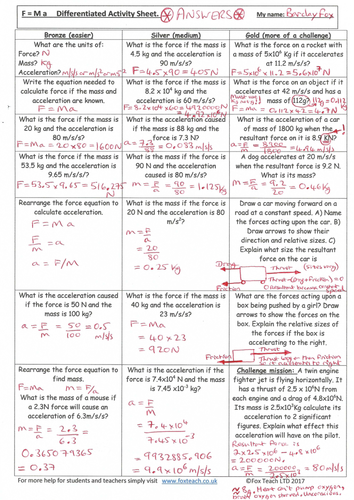 F = M a Differentiated Activity Sheet. ANSWERS My name: Barclay Fox
Bronze (easier)
Silver (medium)
Gold (more of a challenge)
What are the units of:
Force? N
Mass? Kg
Acceleration?
What is the force if the mass is
4.5 kg and the acceleration is
90 m/s/s?
F=4.5x90=405N
What is the force on a rocket with
a mass of 5x10⁶ Kg if it accelerates
at 11.2 m/s/s?
F=5x10⁶x11.2=5.6x10⁷N
Write the equation needed to
calculate force if the mass and
acceleration are known.
F=Ma
What is the force if the mass is
8.2 x10⁴ kg and the
acceleration is 60 m/s/s?
F=8.2x10⁴x60=4920000N
=4.92x10⁶N
What is the force on an object if it
accelerates at 42 m/s/s and has a
mass of 112g?
F=Ma =0.112x42=4.7N
What is the force if the mass is
20 kg and the acceleration is
80 m/s/s?
F=Ma=20x80=1600N
What is the acceleration caused
if the mass is 88 kg and the
force is 7.3 N?
a=7.3/88=0.083m/s/s
What is the acceleration of a car
of mass of 1800 kg when the
resultant force on it is 8.9 kN?
a=F/M=8900/1800=4.94m/s/s
What is the force if the mass is
53.5 kg and the acceleration is
9.65 m/s/s?
F=53.5x9.65=516.275N
What is the mass if the force is
90 N and the acceleration is
80 m/s/s?
m=F/a=90/80=1.125kg
A dog accelerates at 20 m/s/s
when the resultant force is 9.2 N.
What is its mass?
M=F/a=9.2/20=0.46kg
Rearrange the force equation to
calculate acceleration.
F=Ma
F/M=a
a=F/M
What is the mass if the force is
20 N and the acceleration is 80
m/s²?
m=F/a
=20/80
=0.25kg
Draw a car moving forward on a
road at a constant speed. A) Name
the forces acting upon the car. B)
Draw arrows to show their
direction and relative sizes. C)
Explain what size the resultant
force on the car is
Drag
Thrust
Friction
Thrust=(Drag+Friction)=0
What is the acceleration caused
if the force is 50 N and the
mass is 100 kg?
a=F/m=50/100=0.5m/s/s
What is the force if the mass is
40 kg and the acceleration is
23 m/s/s?
F=Ma
=40x23
=920N
What are the forces acting upon a
box being pushed by a girl? Draw
arrows to show the forces on the
box. Explain the relative sizes of
the forces if the box is
accelerating to the right.
Friction
Thrust
Rearrange the force equation to
find mass.
F=Ma m=F/a
What is the mass of a mouse if
a 2.3N force will cause an
acceleration of 6.3m/s/s?
m=F/a=2.3/6.3=
0.365079365
=0.37
What is the acceleration if the
force is 7.4x10⁴ N and the mass
is 7.45 x10⁻³ kg?
a=F/M
=7.4x10⁴
7.45x10⁻³
=9932885.906
=9.9x10⁶m/s/s
Challenge mission: A twin engine
fighter jet is flying horizontally. It
has a thrust of 2.5 x10⁶N from
each engine and a drag of 4.8x10⁶N.
Its mass is 2.5x10³Kg calculate its
acceleration to 2 significant
figures. Explain what effect this
acceleration will have on the pilot.
Resultant Force is
2x2.5x10⁶-4.8x10⁶
=200000N.
For more help for students and teachers simply visit www.foxteach.co.uk ©Fox Teach LTD 2017